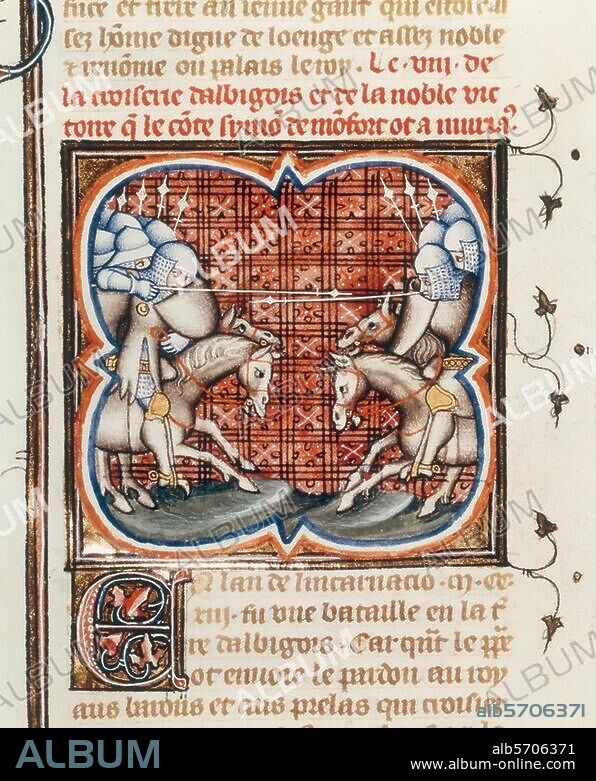 fuce et tirer au ieune gaut qui estoit as
sez hôme digne de loenge et assez noble
⁊ renôme ou palais le roy. Le .viii. de
la croiserie dalbigois et de la noble vic
toire q̃ le côte symô de môfort ot a murt9.
lan de lincarnaciô .m. cc.
xiii. fu une bataille en la t̃
re dalbigois. Car qñt le p̃pe
ot envoie le pardon au roy
aus barons et aus prelas qui croisie
ALBUM
alb5706371
ALBUM
alb5706371
www.album-online.com